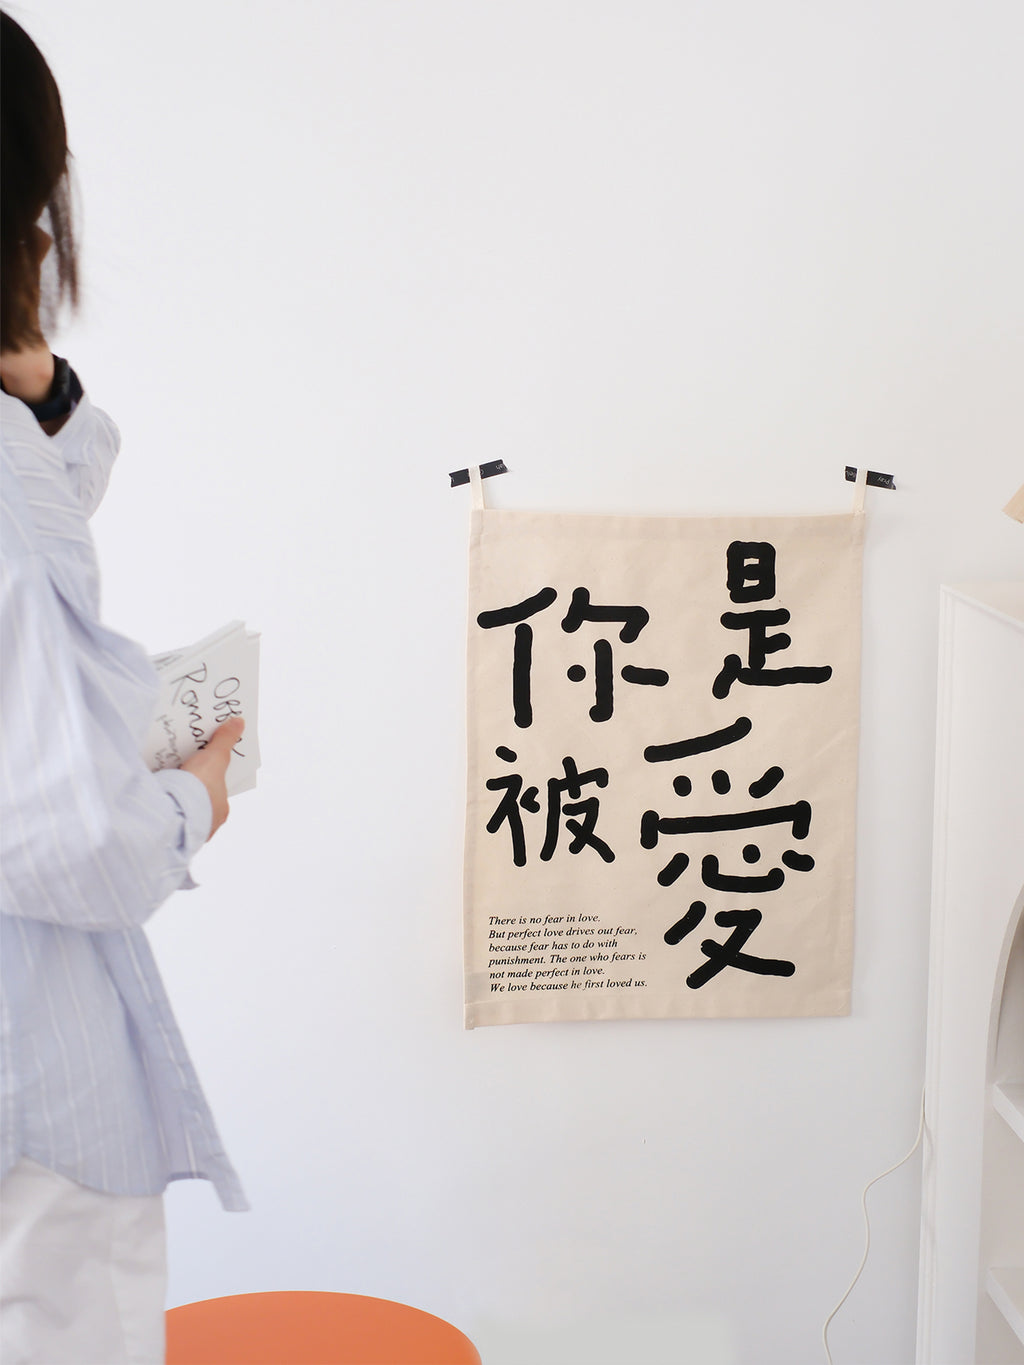 你是
被愛
There is no fear in love.
But perfect love drives out fear,
because fear has to do with
punishment. The one who fears is
not made perfect in love.
We love because he first loved us.
Pray